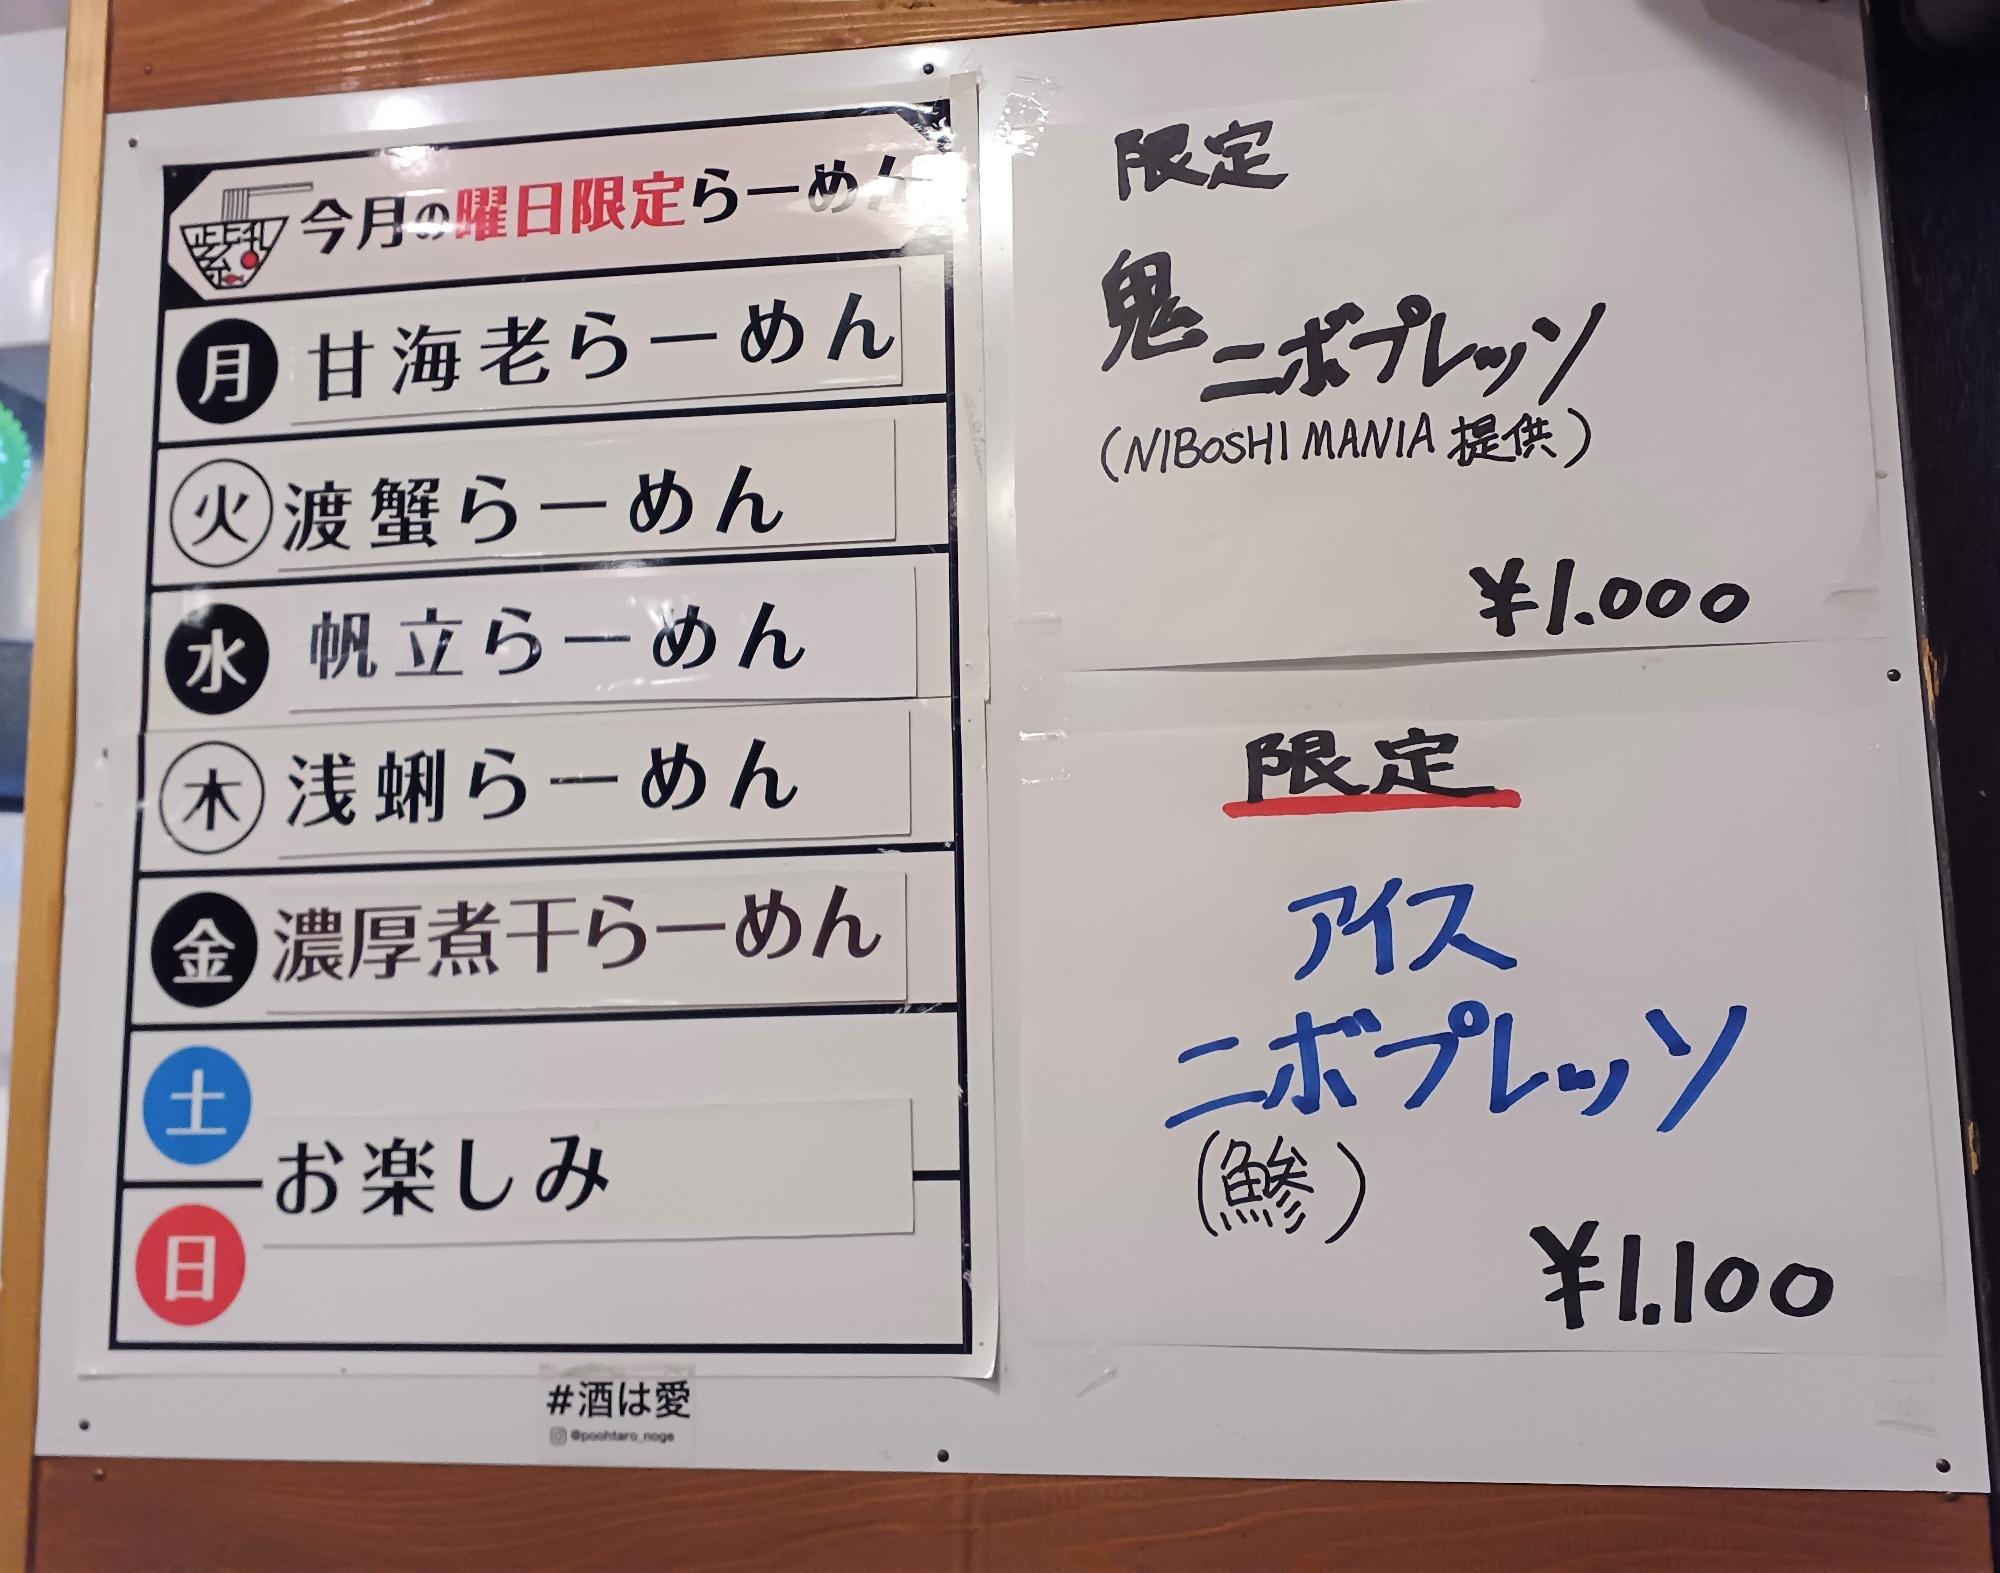 今月の曜日限定らーめん
月 甘海老らーめん
火 渡蟹らーめん
水 帆立らーめん
木 浅蜊らーめん
金 濃厚煮干らーめん
土
お楽しみ
日
#酒は愛
@poohtaro_noge
限定
鬼ニボプレッソ
(NIBOSHI MANIA 提供)
¥1.000
限定
アイス
ニボプレッソ
(鯵)
¥1.100